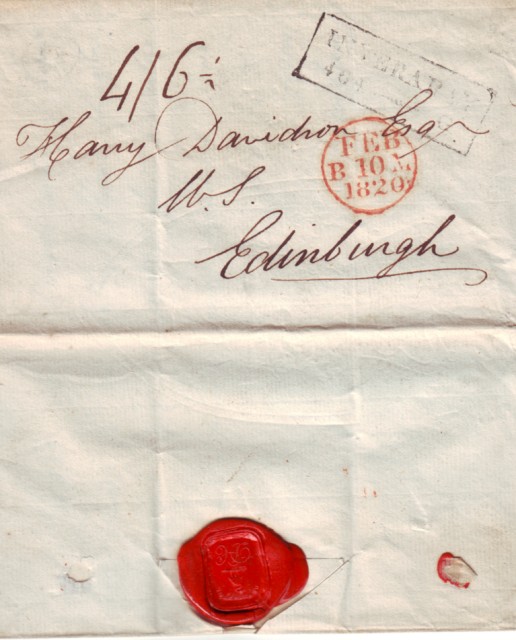 INVERARAY
4/6½
Harry Davidson Esqr
W.S.
Edinburgh
FEB
B 10 M
1820